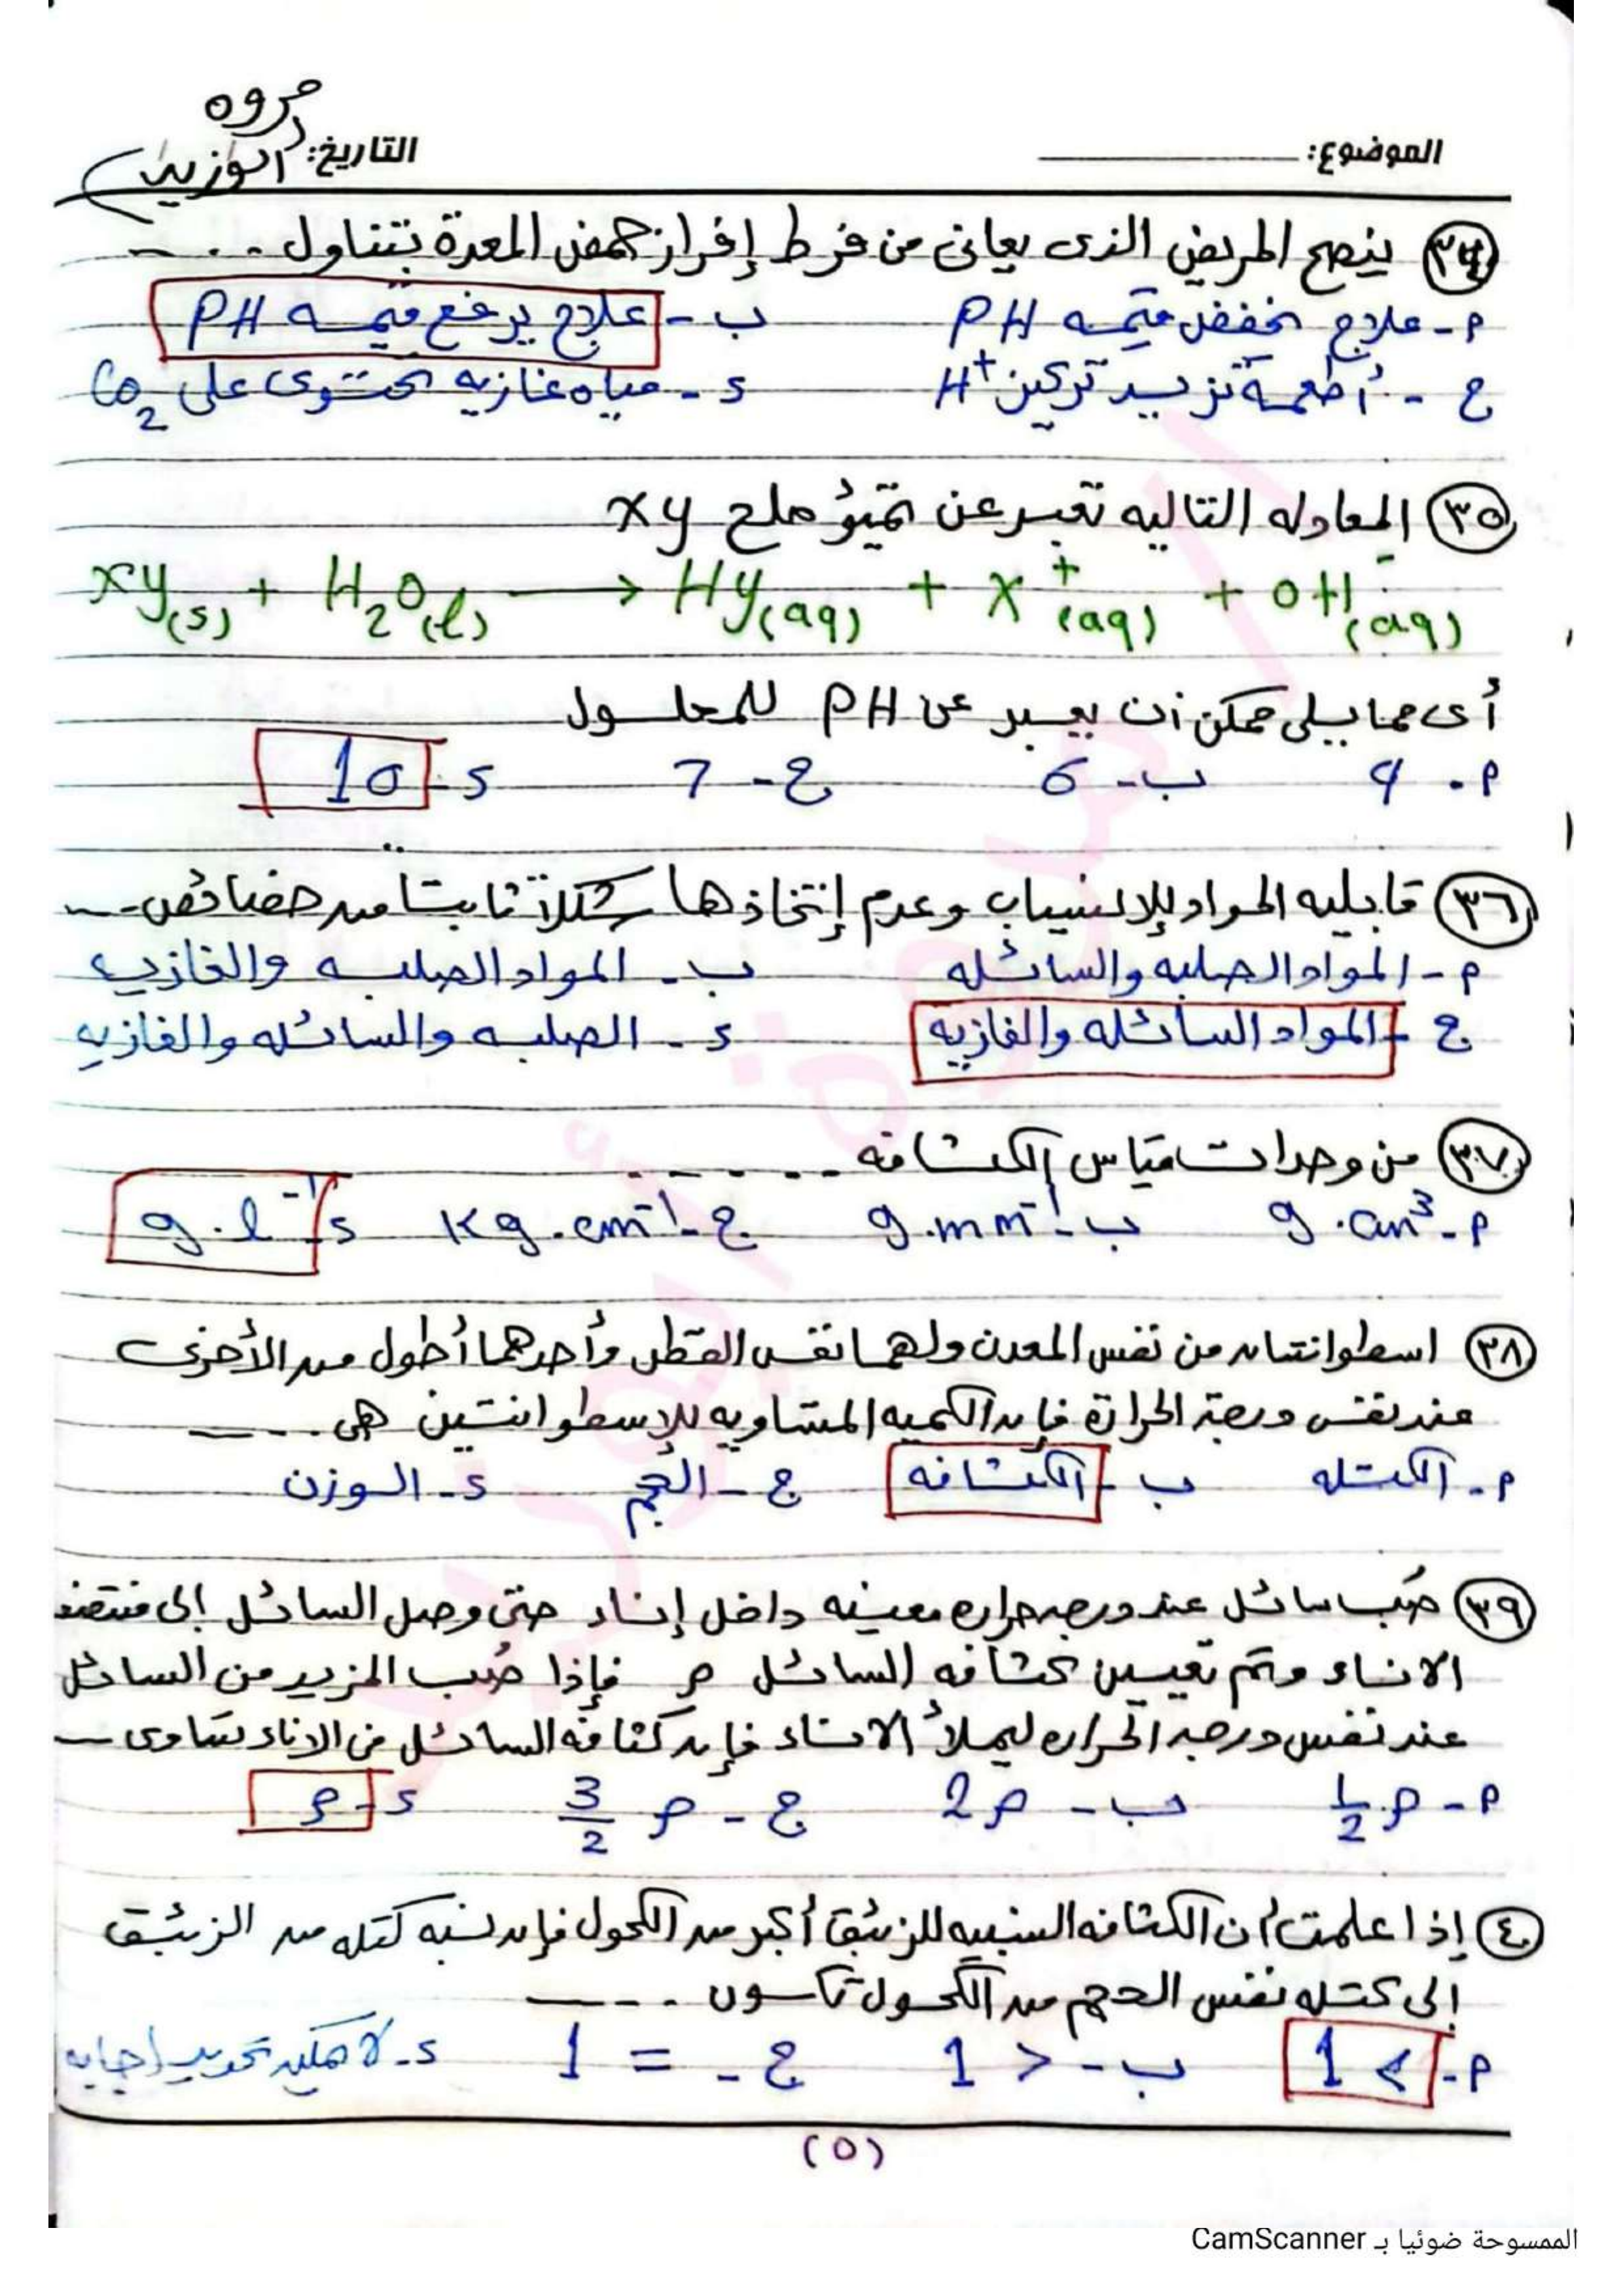 مروه
الموضوع: التاريخ: الوزير
٣٤ ينصح المريض الذى يعانى من فرط إفراز حمض المعدة بتناول ....
أ- علاج يخفض قيمه PH ب- علاج يرفع قيمه PH
ج- أطعمة تزيد تركيز H⁺ د- مياه غازيه تحتوى على CO₂
٣٥ المعادله التاليه تعبر عن تميؤ ملح xy
xy(s) + H₂O(l) → Hy(aq) + x⁺(aq) + OH⁻(aq)
أى مما يلى ممكن أن يعبر عن PH للمحلول
أ- 4 ب- 6 ج- 7 د- 10
٣٦ قابليه المواد للإنسياب وعدم إتخاذها شكلاً ثابتاً من خصائص....
أ- المواد الصلبه والسائله ب- المواد الصلبه والغازيه
ج- المواد السائله والغازيه د- الصلبه والسائله والغازيه
٣٧ من وحدات قياس الكثافه ......
أ- g.cm³ ب- g.mm⁻¹ ج- Kg.cm⁻¹ د- g.l⁻¹
٣٨ اسطوانتان من نفس المعدن ولهما نفس القطر وأحدهما أطول من الأخرى
عند نفس درجة الحرارة فإن الكميه المتساويه للإسطوانتين هى ....
أ- الكتله ب- الكثافه ج- الحجم د- الوزن
٣٩ صُب سائل عند درجه حراره معينه داخل إناء حتى وصل السائل إلى منتصف
الاناء وتم تعيين كثافه السائل ρ فإذا صُب المزيد من السائل
عند نفس درجه الحراره ليملأ الاناء فإن كثافه السائل فى الاناء تساوى ــ
أ- ½ρ ب- 2ρ ج- 3/2 ρ د- ρ
٤٠ إذا علمت أن الكثافه النسبيه للزئبق أكبر من الكحول فإن نسبه كتله من الزئبق
إلى كتله نفس الحجم من الكحول تكون ....
أ- > 1 ب- < 1 ج- = 1 د- لا يمكن تحديد إجابه
(٥)
الممسوحة ضوئيا بـ CamScanner